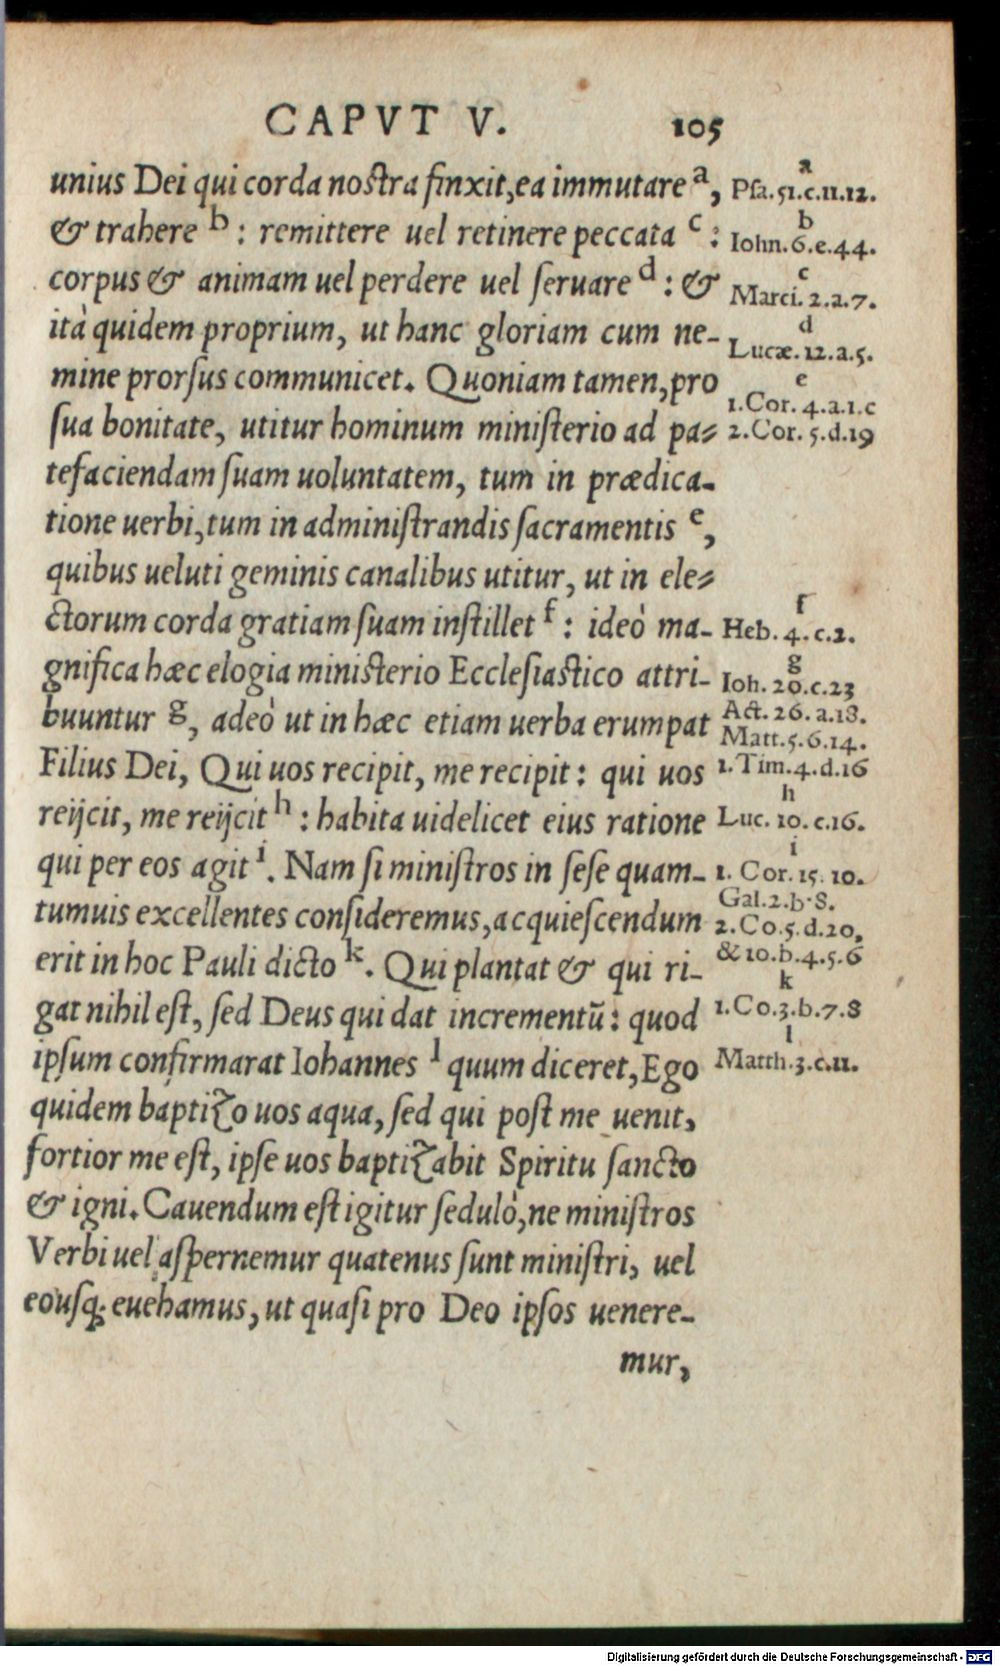 CAPVT V. 105
unius Dei qui corda nostra finxit, ea immutare a,
& trahere b : remittere uel retinere peccata c :
corpus & animam uel perdere uel seruare d : &
ità quidem proprium, ut hanc gloriam cum ne-
mine prorsus communicet. Quoniam tamen, pro
sua bonitate, utitur hominum ministerio ad pa-
tefaciendam suam uoluntatem, tum in prædica-
tione uerbi, tum in administrandis sacramentis e,
quibus ueluti geminis canalibus utitur, ut in ele-
ctorum corda gratiam suam instillet f : ideò ma-
gnifica hæc elogia ministerio Ecclesiastico attri-
buuntur g, adeò ut in hæc etiam uerba erumpat
Filius Dei, Qui uos recipit, me recipit: qui uos
reijcit, me reijcit h : habita uidelicet eius ratione
qui per eos agit i. Nam si ministros in sese quam-
tumuis excellentes consideremus, acquiescendum
erit in hoc Pauli dicto k. Qui plantat & qui ri-
gat nihil est, sed Deus qui dat incrementū: quod
ipsum confirmarat Iohannes l quum diceret, Ego
quidem baptizo uos aqua, sed qui post me uenit,
fortior me est, ipse uos baptizabit Spiritu sancto
& igni. Cauendum est igitur sedulò, ne ministros
Verbi uel aspernemur quatenus sunt ministri, uel
eousq; euehamus, ut quasi pro Deo ipsos uenere-
mur,
a
Psa. 51. c. 11. 12.
b
Iohn. 6. e. 44.
c
Marci. 2. a. 7.
d
Lucæ. 12. a. 5.
e
1. Cor. 4. a. 1. c
2. Cor. 5. d. 19
f
Heb. 4. c. 2.
g
Ioh. 20. c. 23
Act. 26. a. 18.
Matt. 5. 6. 14.
1. Tim. 4. d. 16
h
Luc. 10. c. 16.
i
1. Cor. 15. 10.
Gal. 2. b. 8.
2. Co. 5. d. 20,
& 10. b. 4. 5. 6
k
1. Co. 3. b. 7. 8
l
Matth. 3. c. 11.
Digitalisierung gefördert durch die Deutsche Forschungsgemeinschaft - DFG